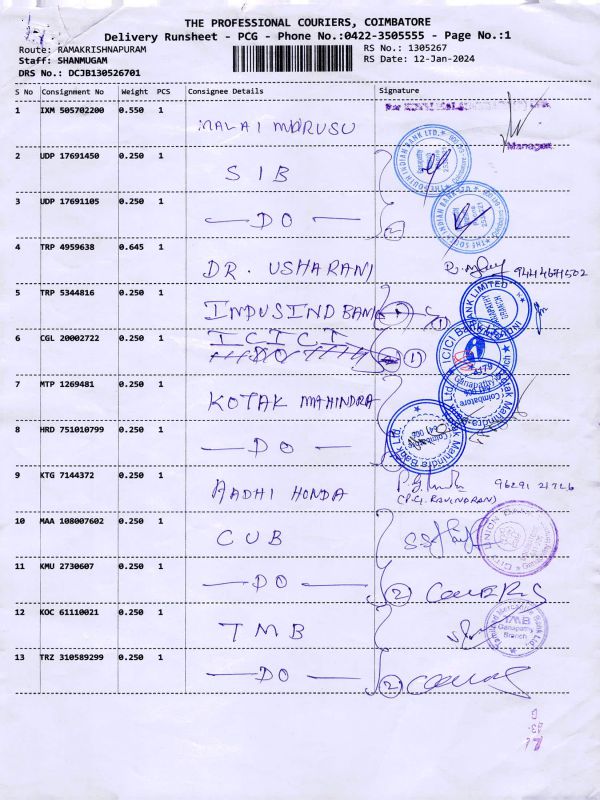 THE PROFESSIONAL COURIERS, COIMBATORE
Delivery Runsheet - PCG - Phone No.:0422-3505555 - Page No.:1
Route: RAMAKRISHNAPURAM RS No.: 1305267
Staff: SHANMUGAM RS Date: 12-Jan-2024
DRS No.: DCJB130526701
S No Consignment No Weight PCS Consignee Details Signature
1 IXM 505702200 0.550 1 MALAI MURUSU
Manager
2 UDP 17691450 0.250 1 SIB
3 UDP 17691105 0.250 1 — DO — 2
4 TRP 4959638 0.645 1 DR. USHARANI 9444671502
5 TRP 5344816 0.250 1 INDUSIND BANK 1
6 CGL 20002722 0.250 1 ICICI 1
7 MTP 1269481 0.250 1 KOTAK MAHINDRA
8 HRD 751010799 0.250 1 — DO —
9 KTG 7144372 0.250 1 AADHI HONDA 96291 21726
(P.G. RAVINDRAN)
10 MAA 108007602 0.250 1 CUB
11 KMU 2730607 0.250 1 — DO — 2
12 KOC 61110021 0.250 1 TMB
TMB
Ganapathy
Branch
13 TRZ 310589299 0.250 1 — DO — 2